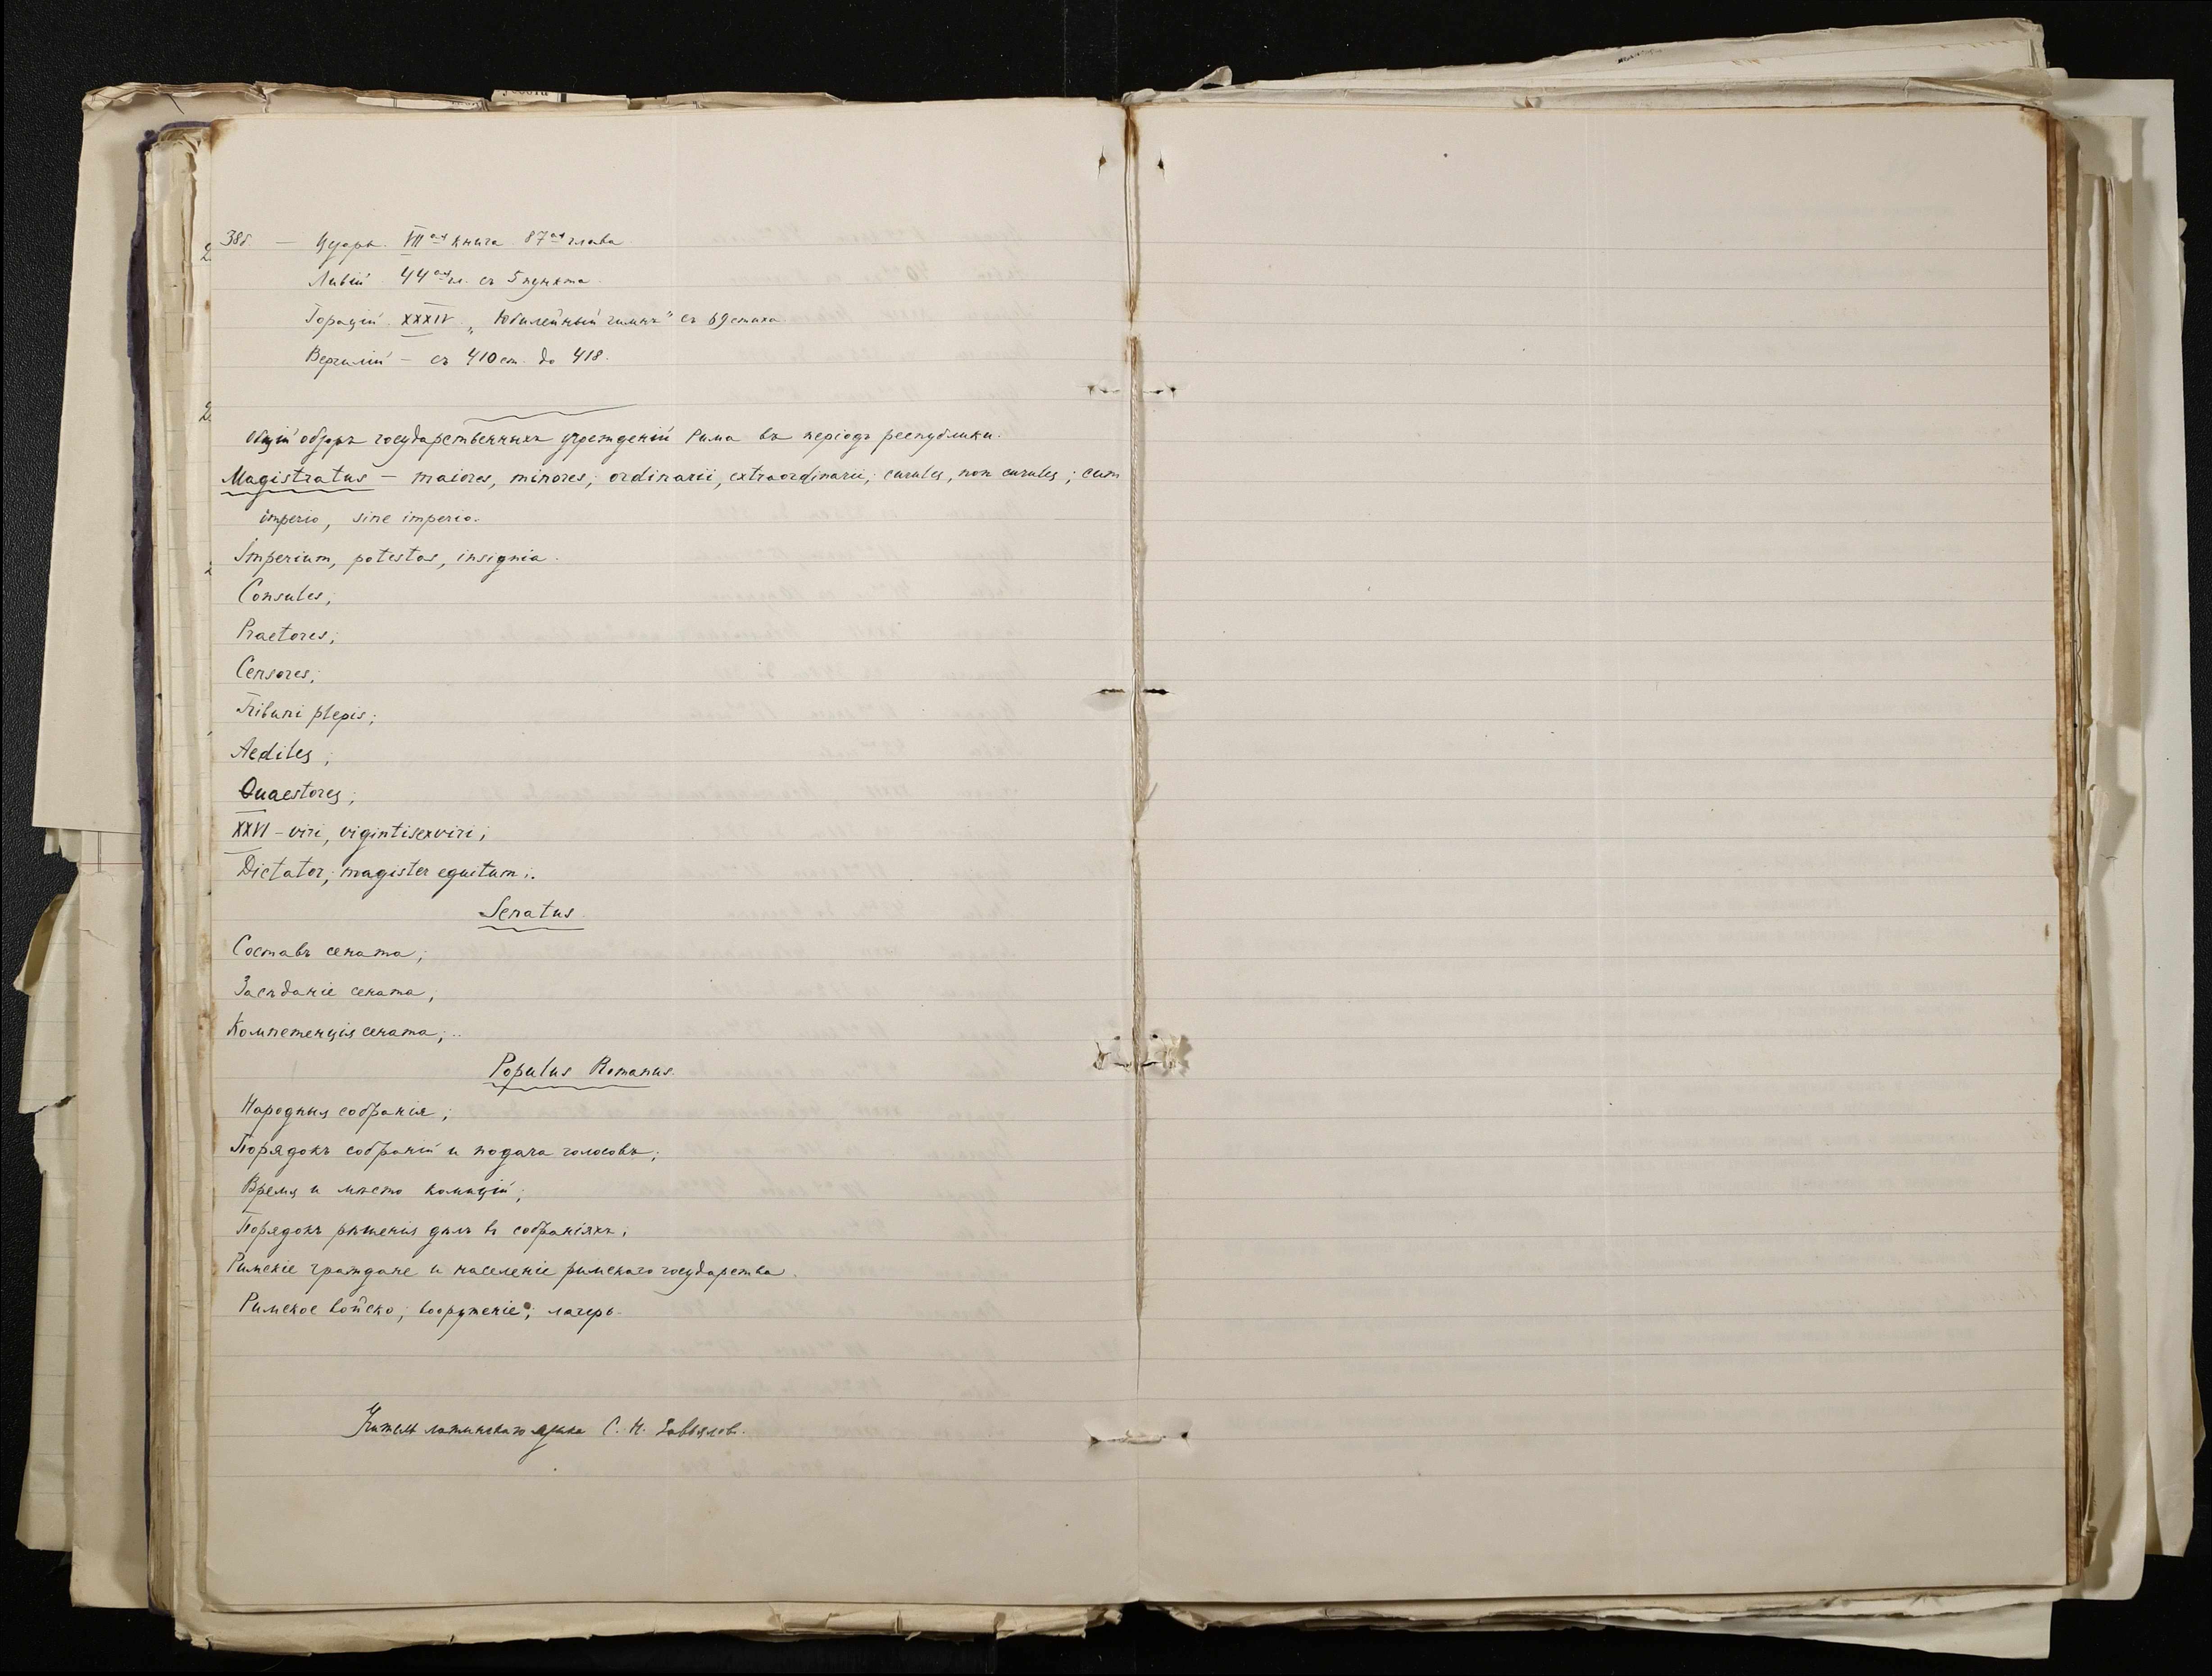 38б. — Цезарь. VII ая книга. 87 ая глава.
Ливій 44 ая гл. съ 5 пункта.
Горацій. XXXIV. „Юбилейный гимнъ" съ 69 стиха.
Вергилій — съ 410 ст. до 418.
Общій обзоръ государственныхъ учрежденій Рима въ періодъ республики.
Magistratus — maiores, minores; ordinarii, extraordinarii; curules, non curules; cum
imperio, sine imperio.
Imperium, potestas, insignia.
Consules;
Praetores;
Censores;
Tribuni plepis;
Aediles;
Quaestores;
XXVI – viri, vigintisexviri;
Dictator; magister equitum;.
Senatus.
Составъ сената;
Засѣданіе сената;
Компетенція сената;..
Populus Romanus.
Народныя собранія;
Порядокъ собраній и подача голосовъ;
Время и мѣсто комицій;
Порядокъ рѣшенія дѣлъ въ собраніяхъ;
Римскіе граждане и населеніе римскаго государства.
Римское войско; вооруженіе; лагерь.
Учитель латинскаго языка С. Н. Завьялов.